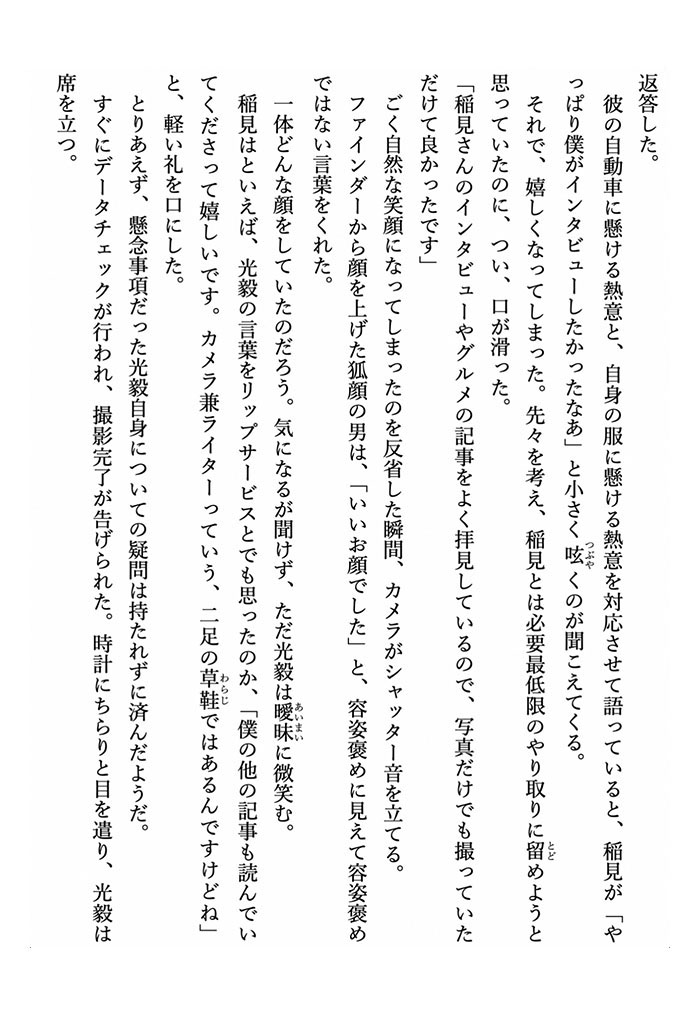 返答した。
　彼の自動車に懸ける熱意と、自身の服に懸ける熱意を対応させて語っていると、稲見が「や
っぱり僕がインタビューしたかったなあ」と小さく呟くのが聞こえてくる。
　それで、嬉しくなってしまった。先々を考え、稲見とは必要最低限のやり取りに留めようと
思っていたのに、つい、口が滑った。
「稲見さんのインタビューやグルメの記事をよく拝見しているので、写真だけでも撮っていた
だけて良かったです」
　ごく自然な笑顔になってしまったのを反省した瞬間、カメラがシャッター音を立てる。
　ファインダーから顔を上げた狐顔の男は、「いいお顔でした」と、容姿褒めに見えて容姿褒め
ではない言葉をくれた。
　一体どんな顔をしていたのだろう。気になるが聞けず、ただ光毅は曖昧に微笑む。
　稲見はといえば、光毅の言葉をリップサービスとでも思ったのか、「僕の他の記事も読んでい
てくださって嬉しいです。カメラ兼ライターっていう、二足の草鞋ではあるんですけどね」
と、軽い礼を口にした。
　とりあえず、懸念事項だった光毅自身についての疑問は持たれずに済んだようだ。
　すぐにデータチェックが行われ、撮影完了が告げられた。時計にちらりと目を遣り、光毅は
席を立つ。